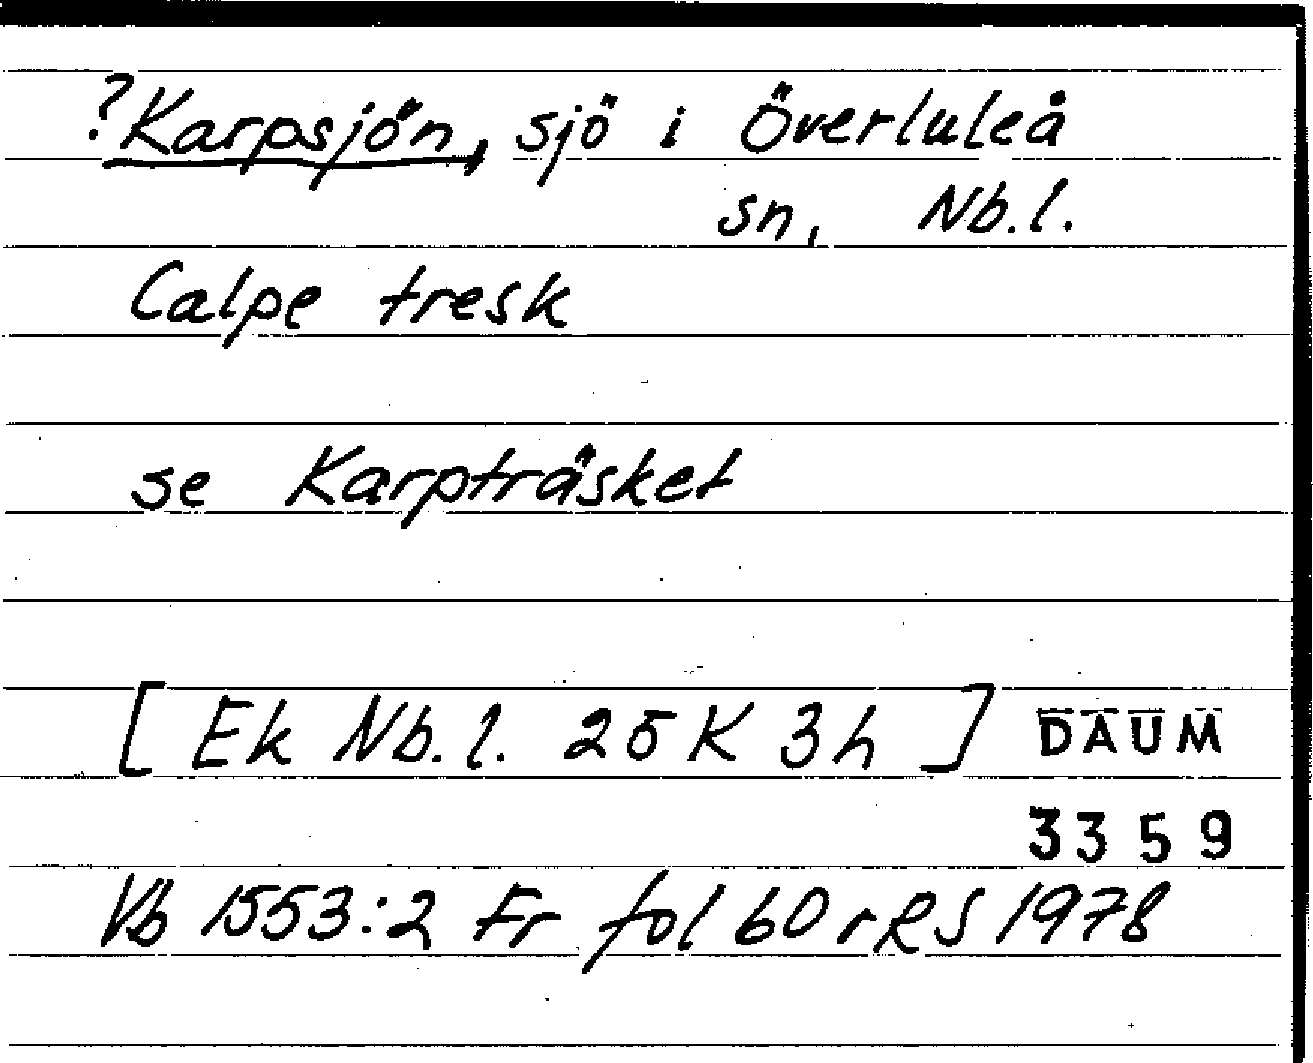 ?Karpsjön, sjö i Överluleå
sn, Nb.l.
Calpe tresk
se Karpträsket
[ Ek Nb.l. 25 K 3h ] DAUM
3359
Vb 1553:2 Fr fol 60 r RS 1978